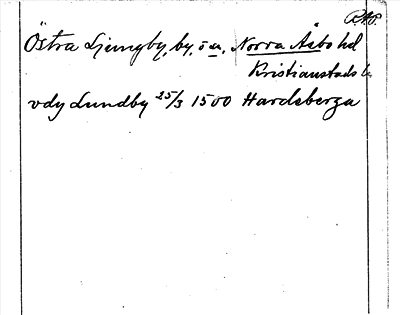 RAP.
Östra Ljungby, by, o sn, Norra Åsbo hd
Kristianstads l.
vdy Lundby 25/3 1500 Hardeberga